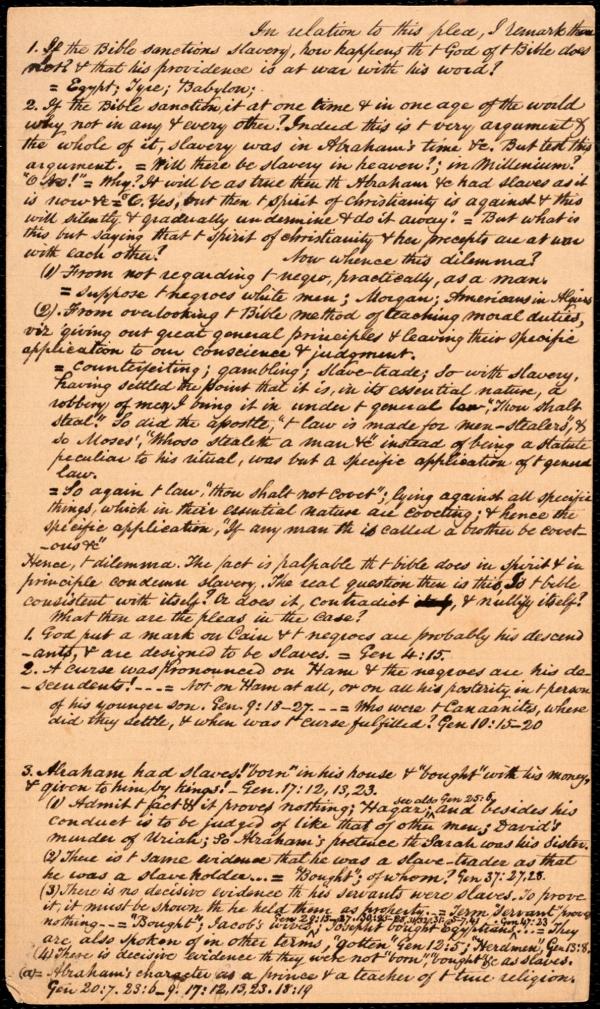 In relation to this plea, I remark then
1. If the Bible sanctions slavery, how happens th t God of t Bible does
not? & that his providence is at war with his word?
= Egypt; Tyre; Babylon;
2. If the Bible sanction it at one time & in one age of the world
why not in any & every other? Indeed this is t very argument &
the whole of it, slavery was in Abraham's time &c. But test this
argument. = Will there be slavery in heaven?; in Millenium?
"O No!" = Why? It will be as true then th Abraham &c had slaves as it
is now &c = "O. Yes, but then t spirit of Christianity is against & this
will silently & gradually undermine & do it away." = But what is
this but saying that t spirit of christianity & her precepts are at war
with each other? Now whence this dilemma?
(1) From not regarding t negro, practically, as a man.
= suppose t negroes white men; Morgan; Americans in Algiers
(2). From overlooking t Bible method of teaching moral duties,
viz giving out great general principles & leaving their specific
application to our conscience & judgment.
= counterfeiting; gambling; slave-trade; So with slavery,
having settled the point that it is, in its essential nature, a
robbery of men, I bring it in under t general law, "Thou shalt
steal." So did the apostle, "t law is made for men-stealers", &
so Moses', "Whoso stealeth a man &c" instead of being a statute
peculiar to his ritual, was but a specific application of t general
law.
= So again t law, "thou shalt not covet"; lying against all specific
things, which in their essential nature are coveting; & hence the
specific application, "If any man th is called a brother be covet-
-ous &c"
Hence, t dilemma. The fact is palpable th t bible does in spirit & in
principle condemn slavery. The real question then is this, Is t bible
consistent with itself? Or does it, contradict, & nullify itself?
What then are the pleas in the case?
1. God put a mark on Cain & t negroes are probably his descend
-ants, & are designed to be slaves. = Gen 4:15.
2. A curse was pronounced on Ham & the negroes are his de-
-scendents! - - - = Not on Ham at all, or on all his posterity, in t person
of his younger son. Gen. 9:18-27. - - - = Who were t Canaanites, where
did they settle, & when was t curse fulfilled? Gen 10:15-20
3. Abraham had slaves! "born" in his house & "bought" with his money,
& given to him by kings! - Gen. 17:12, 13, 23.
see also Gen 25:6
(1) Admit t fact & it proves nothing; Hagar; and besides his
conduct is to be judged of like that of other men; David's
murder of Uriah; So Abraham's pretence th Sarah was his sister.
(2) There is t same evidence that he was a slave-trader as that
he was a slaveholder... = "Bought"; of whom? Gen 37:27,28.
(3) There is no decisive evidence th his servants were slaves. To prove
it, it must be shown th he held them as property. - = Term servant proves
nothing - - = "Bought"; Jacob's wives, Joseph bought Egyptians. . . = They
are, also spoken of in other terms, "gotten" Gen 12:5; "Herdmen", Gen 13:8.
(4) There is decisive evidence th they were not "born", "bought" &c as slaves.
(a) = Abraham's character as a prince & a teacher of t true religion.
Gen 20:7. 23:6-9. 17:12,13,23. 18:19